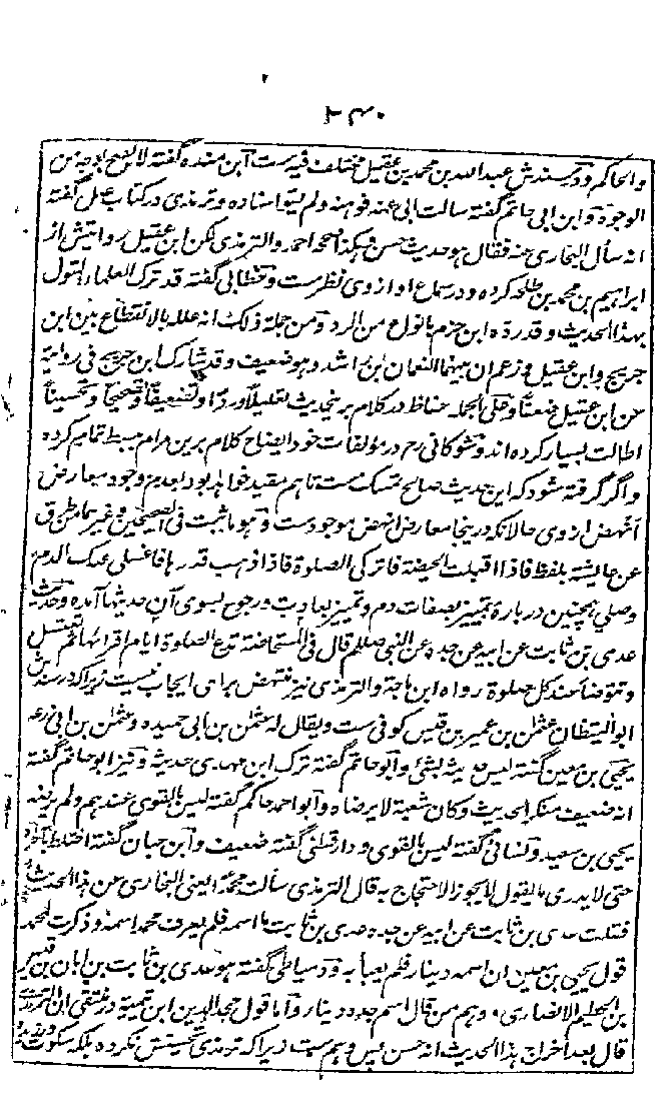 ۲۴۰
والحاکم ودر سندش عبد الله بن محمد بن عقیل مختلف فیه ست ابن منده گفته لا یصح بوجه من
الوجوه وابن ابی حاتم گفته سألت ابی عنه فوهنه ولم یقو اسناده وترمذی در کتاب علل گفته
انه سأل البخاری عنه فقال هو حدیث حسن وهکذا صححه احمد والترمذی لکن ابن عقیل روایتش از
ابراهیم بن محمد بن طلحه کرده ودر سماع او از وی نظر ست وخطابی گفته قد ترک العلماء القول
بهذا الحدیث وقد رده ابن حزم بانواع من الرد ومن جملة ذلک انه علله بالانقطاع بین ابن
جریج وابن عقیل وزعم ان بینهما النعمان بن راشد وهو ضعیف وقد شارک ابن جریج فی روایة
عن ابن عقیل ضعفاً وعلی الجمله حفاظ در کلام بر ینحدیث تعلیلاً ورداً وتضعیفاً وتصحیحاً وتحسیناً
اطالت بسیار کرده اند وشوکانی رح در مؤلفات خود ایضاح کلام برین مرام ببسط تمام کرده
واگر گرفته شود که این حدیث صالح تمسک ست تاهم مقید خواهد بود بعدم وجود معارض
انهض از وی حالانکه درینجا معارض انهض موجود ست وهو ما ثبت فی الصحیحین وغیرهما من طرق
عن عایشة بلفظ فاذا اقبلت الحیضة فاترکی الصلوة فاذا ذهب قدرها فاغسلی عنک الدم
وصلی همچنین درباره تمییز بصفات دم وتمییز بعادت ورجوع بسوی آن حدیثها آمده وحدیث
عدی بن ثابت عن ابیه عن جده عن النبی صللم قال فی المستحاضة تدع الصلوة ایام اقرائها ثم تغتسل
وتتوضأ عند کل صلوة رواه ابن ماجة والترمذی نیز منتهض برای ایجاب نیست زیراکه در سندش
ابو الیقظان عثمان بن عمیر بن قیس کوفی ست ویقال له عثمان بن ابی حمیده وعثمان بن ابی زرعه
یحیی بن معین گفته لیس حدیثه بشئ وابو حاتم گفته ترک ابن مهدی حدیثه ونیز ابو حاتم گفته
انه ضعیف منکر الحدیث وکان شعبة لا یرضاه وابو احمد حاکم گفته لیس بالقوی عندهم ولم یرضه
یحیی بن سعید ونسائی گفته لیس بالقوی ودارقطنی گفته ضعیف وابن حبان گفته اختلط بآخره
حتی لا یدری ما یقول لا یجوز الاحتجاج به قال الترمذی سألت محمداً یعنی البخاری عن هذا الحدیث
فقلت عدی بن ثابت عن ابیه عن جده عدی بن ثابت ما اسمه فلم یعرف محمد اسمه وذکرت لمحمد
قول یحیی بن معین ان اسمه دینار فلم یعبأ به ودمیاطی گفته هو عدی بن ثابت بن ابان بن قیس
بن الخطیم الانصاری، وهم من قال اسم جده دینار واما قول مجد الدین ابن تیمیة در منتقی ان الترمذی
قال بعد اخراج هذا الحدیث انه حسن پس وهم ست زیراکه ترمذی تحسینش نکرده بلکه سکوت